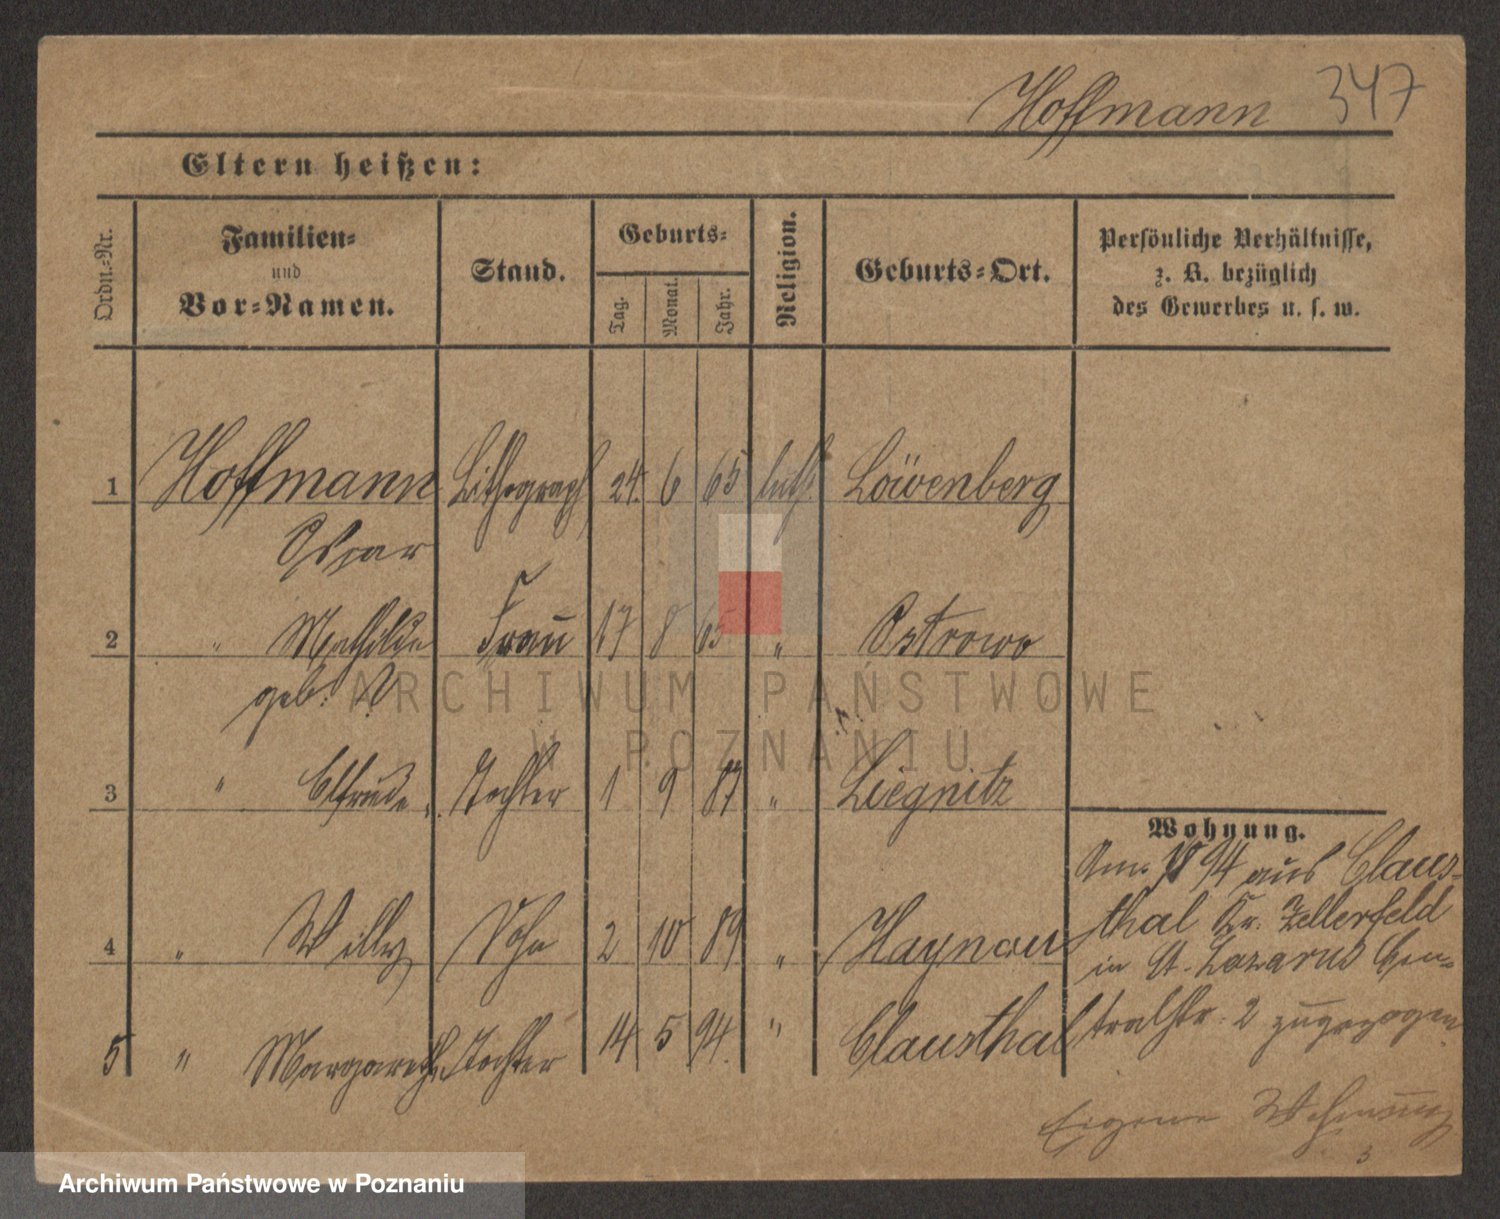 Hoffmann 347
Eltern heißen:
Ordn.-Nr.
Familien-
und
Vor-Namen.
Stand.
Geburts-
Tag.
Monat.
Jahr.
Religion.
Geburts-Ort.
Persönliche Verhältnisse,
z. B. bezüglich
des Gewerbes u. s. w.
1 Hoffmann Lithograph 24. 6 65 luth. Löwenberg
Oskar
2 " Mathilde Frau 17 8 65 " Ostrowo
geb.
3 " Elfriede Tochter 1 9 87 " Liegnitz
4 " Willy Sohn 2 10 89 " Haynau
5 " Margareth Tochter 14 5 94. " Clausthal
Wohnung.
94 aus Claus-
thal Kr. Zellerfeld
in St. Lazarus Cen-
tralstr. 2 zugezogen
Eigene Wohnung
3
ARCHIWUM PAŃSTWOWE
W POZNANIU
Archiwum Państwowe w Poznaniu